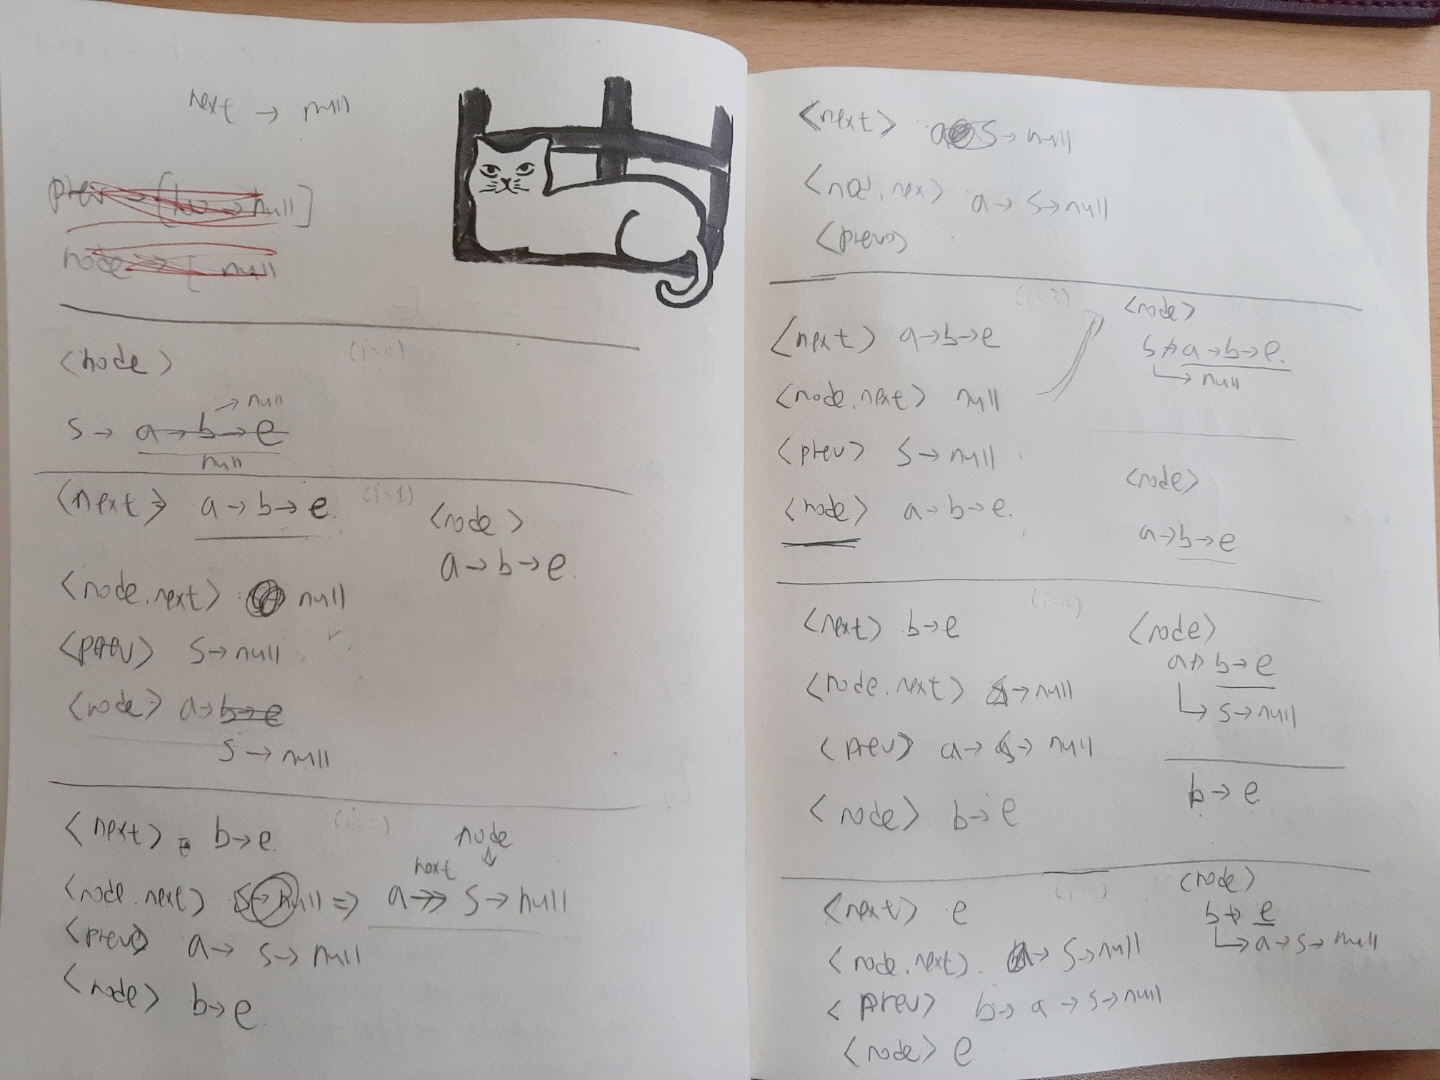 next → null
prev → [ null]
node → [ null
<node>
→ null
s → a → b → e
null
<next> a → b → e. (i=1)
<node>
a → b → e.
<node.next> null
<prev> s → null
<node> a → b → e
s → null
<next> b → e.
node
next
<node.next> s → null => a → s → null
<prev> a → s → null
<node> b → e
<next> a s → null
<nod.next> a → s → null
<prev>
(i=3)
<next> a → b → e
<node>
s → a → b → e.
→ null
<node.next> null
<prev> s → null
<node> a → b → e.
<node>
a → b → e
<next> b → e
<node>
a → b → e
→ s → null
<node.next> s → null
<prev> a → s → null
b → e
<node> b → e
<next> e
<node>
b → e
→ a → s → null
<node.next> a → s → null
<prev> b → a → s → null
<node> e